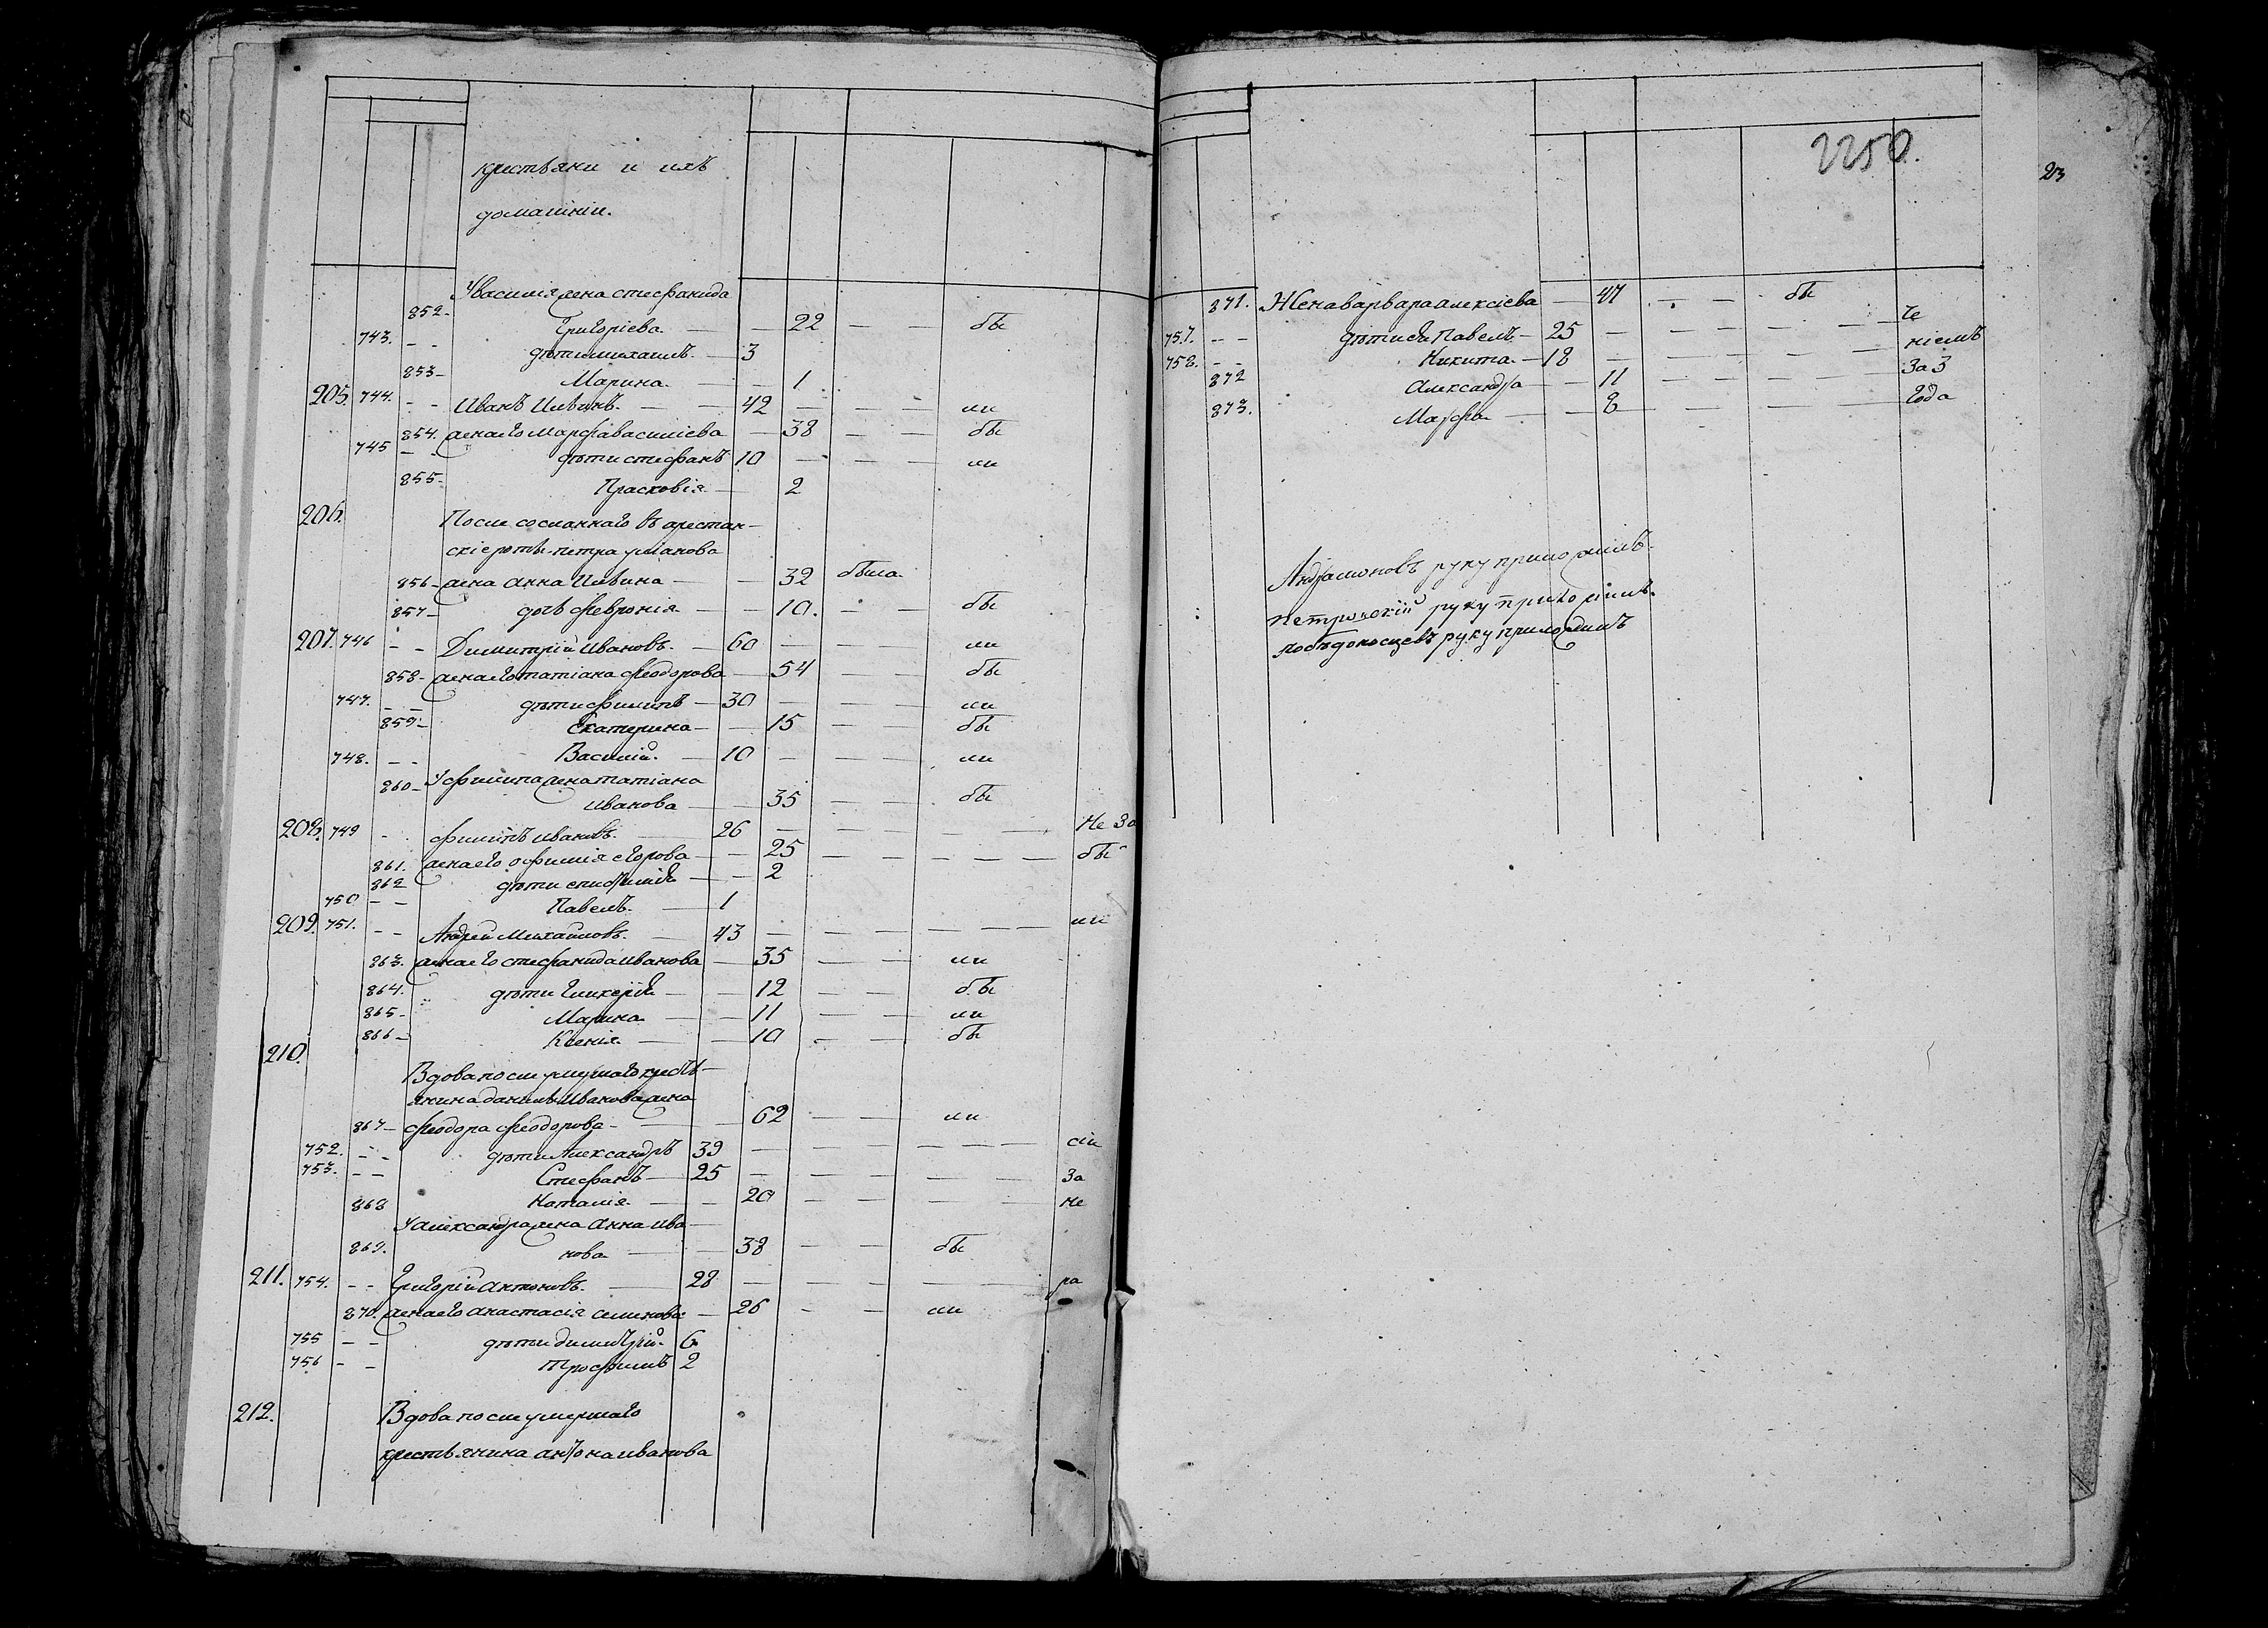 крестьяни и ихъ
домашніи.
У василія жена стефанида
852. Григоріева — — 22 — — бы
743. — — дѣти михаилъ — 3
853 — Марина — — 1
205. 744. — — Иванъ Ильинъ. — 42 — — — ли
854. жена его Марфа василіева — 38 — — бы
745 — — дѣти стефанъ 10 — — — ли
855 — Прасковія — 2
206. После сосланнаго въ арестан-
скіе роты петра
856 — жена анна Ильина — — 32 была
857 — дочь феврония — — 10. — — бы
207. 746 — — Димитрій Ивановъ. — 60 — — — ли
858 — жена его татіана феодорова — 54 — — бы
747. — — дѣти филипъ — 30 — — — ли
859 — Екатерина — — 15 — — бы
748. — — Василій. — 10 — — — ли
860 — У филипа жена татіана
иванова — — 35 — — бы
208. 749 — филипъ ивановъ. — 26 — — — — Не За
861. жена его офимія егорова — — 25 — — — — — бы
862 дѣти — — 2
750 — — Павелъ. — 1
209. 751. — — Андрей Михаиловъ. — 43 — — — — — ли
863. жена его стефанида иванова — 35 — — ли
864. дѣти гликерія — — 12 — — бы
865 — Марина — — 11 — — ли
866 — Ксенія — — 10 — — бы
210. Вдова после умершаго кресть-
янина данилы Иванова жена
867 — феодора феодорова — — — 62 — — ли
752. — — дѣти Александръ 39 — — — — — — сіи
753. — — Стефанъ — 25 — — — — — За
868 Наталія — — 20 — — — — — Не
У александра жена анна ива-
869. нова — — 38 — — бы
211. 754. — — Григорій антоновъ. — 28 — — — — — ра
870. жена его анастасія семенова — 26 — — ли
755 — — дѣти димитрій. 6
756 — — трофимъ 2
212. Вдова после умершаго
крестьянина антона иванова
2250.
23
871. Жена варвара алексіева — 47 — — бы
757. — — дѣти ея Павелъ — 25 — — — — — Че
758. — — Никита — 18 — — — — — ніемъ
872 Александра — — 11 — — — — За 3
873. Марфа — — 8 — — — — Года
руку приложилъ.
петровскій руку приложилъ.
побѣдоносцевъ руку приложилъ